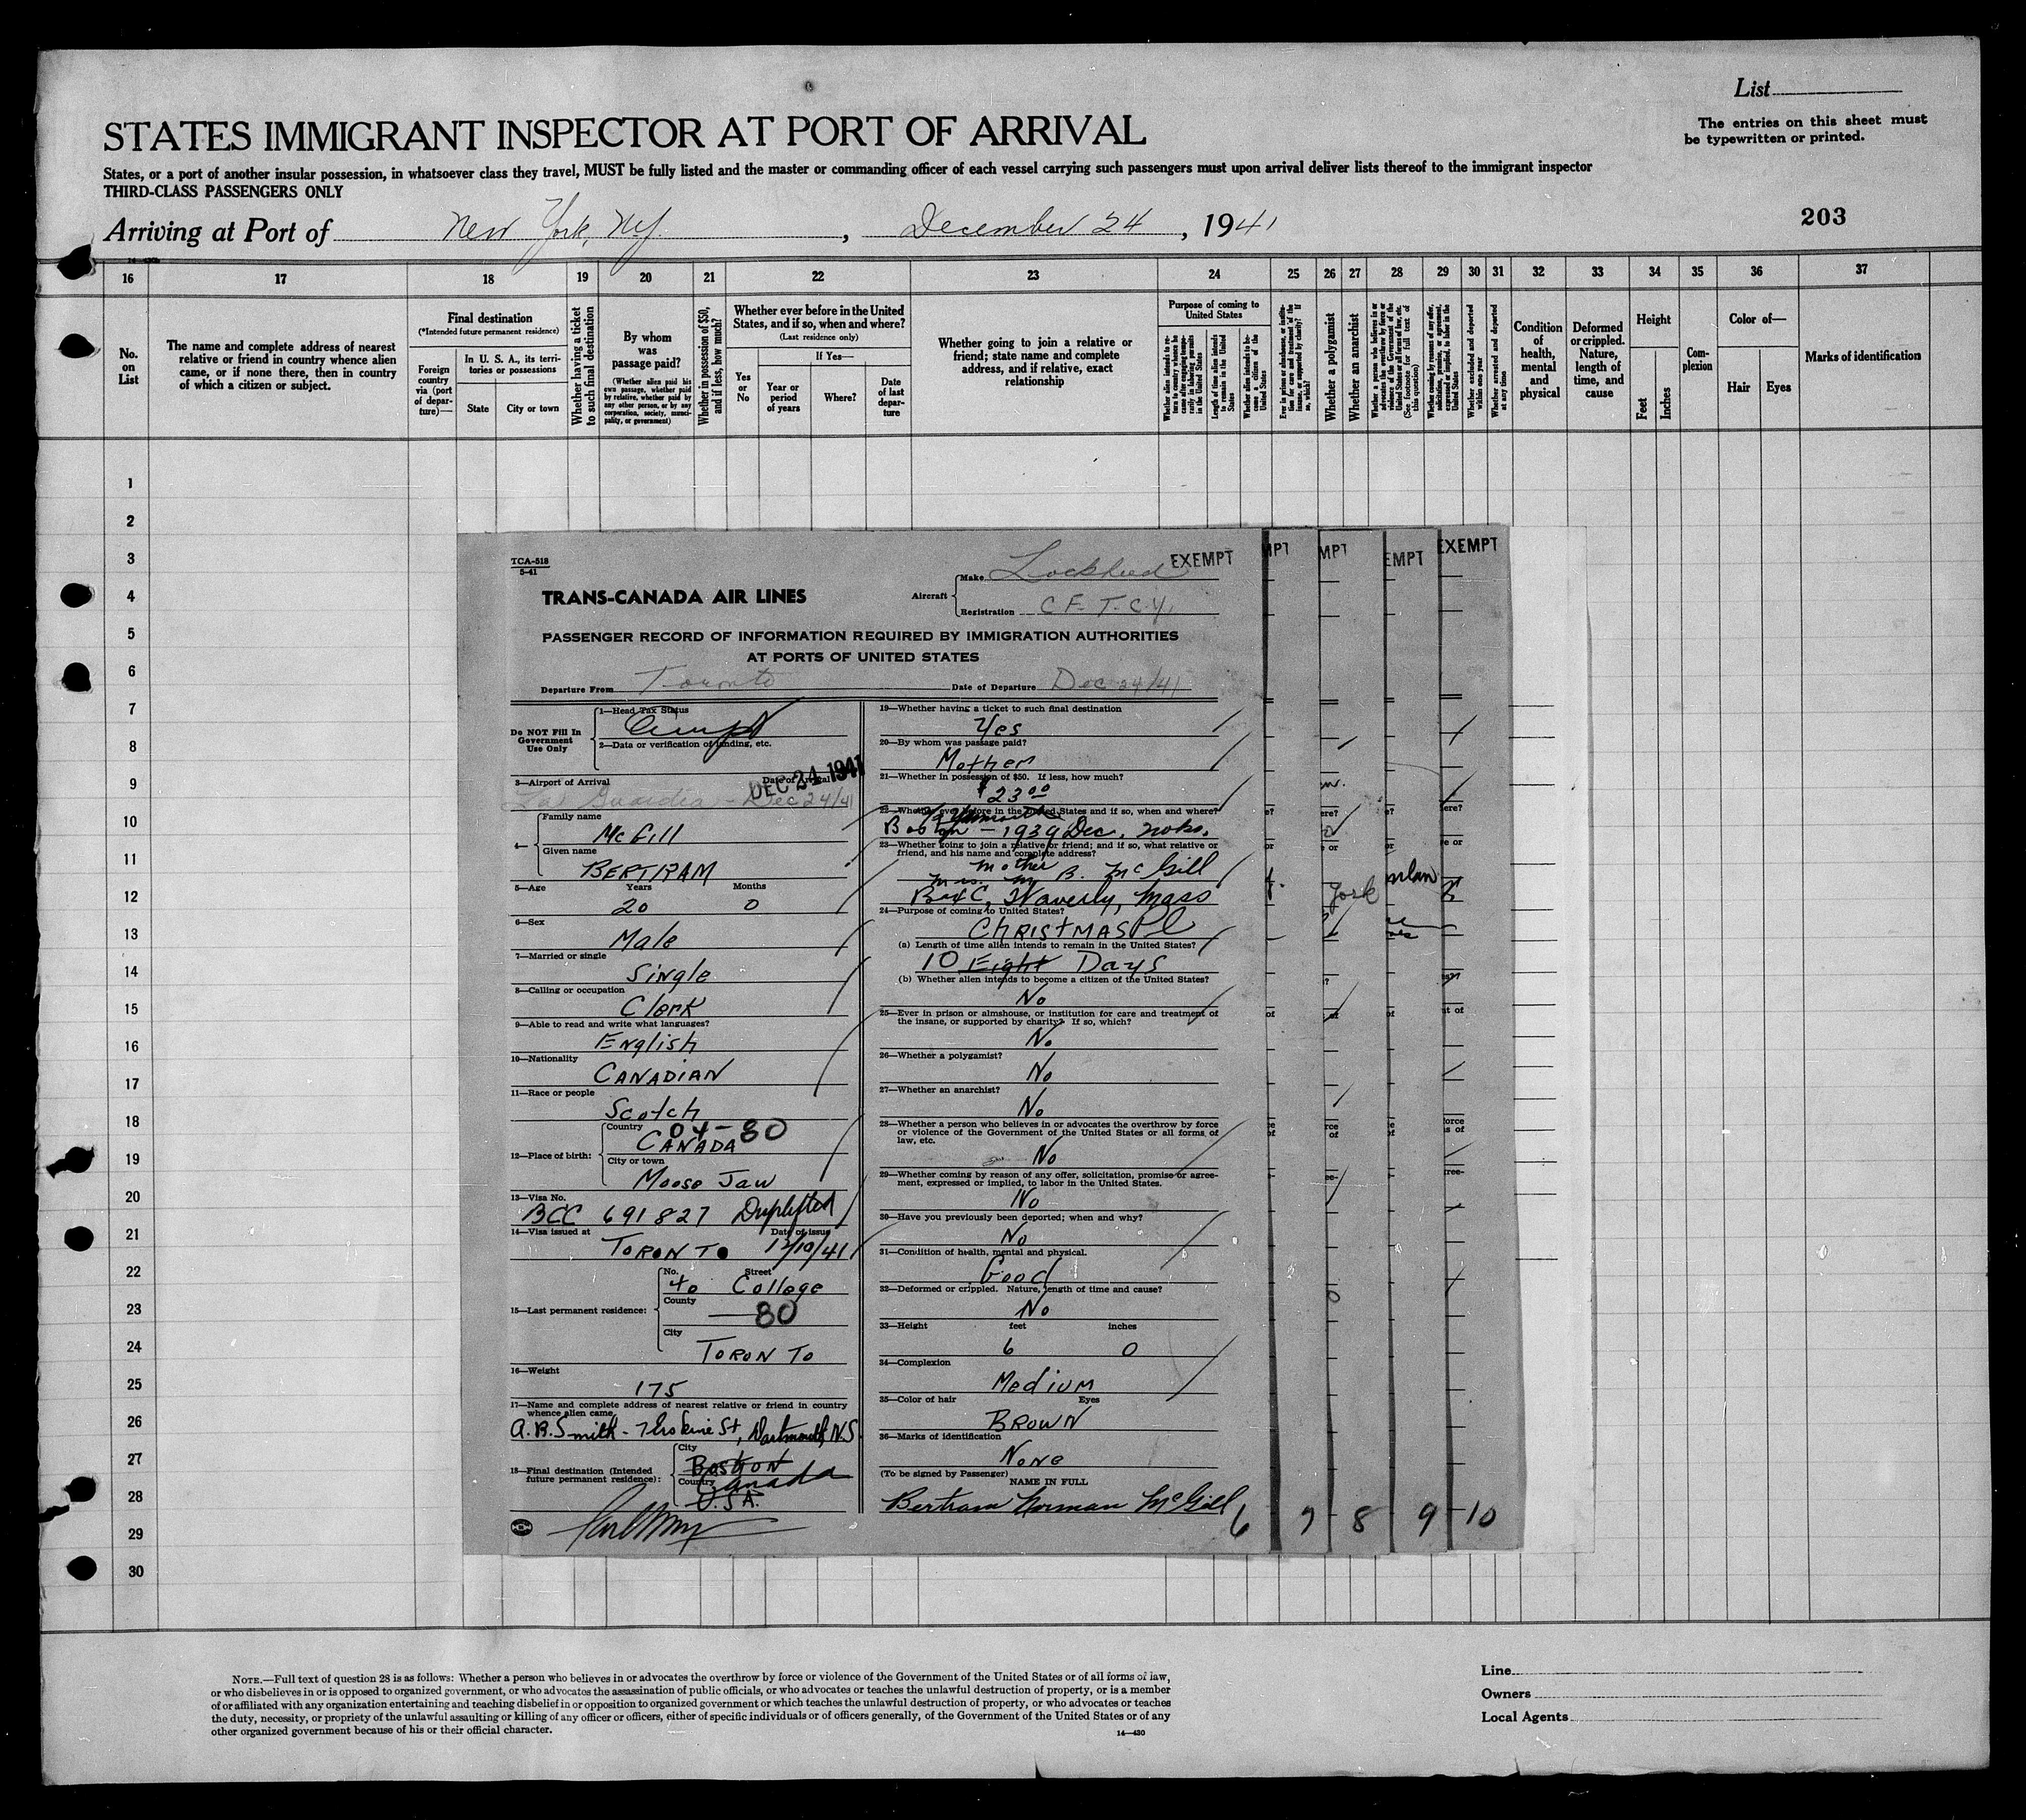 List
The entries on this sheet must
be typewritten or printed.
STATES IMMIGRANT INSPECTOR AT PORT OF ARRIVAL
States, or a port of another insular possession, in whatsoever class they travel, MUST be fully listed and the master or commanding officer of each vessel carrying such passengers must upon arrival deliver lists thereof to the immigrant inspector
THIRD-CLASS PASSENGERS ONLY
203
Arriving at Port of New York, N.Y. , December 24 , 1941
16 17 18 19 20 21 22 23 24 25 26 27 28 29 30 31 32 33 34 35 36 37
No.
on
List
The name and complete address of nearest
relative or friend in country whence alien
came, or if none there, then in country
of which a citizen or subject.
Final destination
(*Intended future permanent residence)
Foreign
country
via (port
of depar-
ture)—
In U. S. A., its terri-
tories or possessions
State
City or town
Whether having a ticket
to such final destination
By whom
was
passage paid?
(Whether alien paid his
own passage, whether paid
by relative, whether paid by
any other person, or by any
corporation, society, munici-
pality, or government)
Whether in possession of $50,
and if less, how much?
Whether ever before in the United
States, and if so, when and where?
(Last residence only)
Yes
or
No
If Yes—
Year or
period
of years
Where?
Date
of last
depar-
ture
Whether going to join a relative or
friend; state name and complete
address, and if relative, exact
relationship
Purpose of coming to
United States
Length of time alien intends
to remain in the United
States
Whether alien intends to be-
come a citizen of the
United States
Whether a polygamist
Whether an anarchist
(See footnote for full text of
this question)
Whether excluded and deported
within one year
Whether arrested and deported
at any time
Condition
of
health,
mental
and
physical
Deformed
or crippled.
Nature,
length of
time, and
cause
Height
Feet
Inches
Com-
plexion
Color of—
Hair
Eyes
Marks of identification
1
2
3
4
5
6
7
8
9
10
11
12
13
14
15
16
17
18
19
20
21
22
23
24
25
26
27
28
29
30
TCA-518
5-41
EXEMPT
MPT
MPT
EMPT
EXEMPT
TRANS-CANADA AIR LINES
Aircraft
Make Lockheed
Registration CF-T-C-Y
PASSENGER RECORD OF INFORMATION REQUIRED BY IMMIGRATION AUTHORITIES
AT PORTS OF UNITED STATES
Departure From Toronto Date of Departure Dec 24/41
Do NOT Fill In
Government
Use Only
1—Head Tax Status
2—Data or verification of landing, etc.
3—Airport of Arrival Date of Arrival
DEC 24 1941
La Guardia - Dec 24/41
4—
Family name
McGill
Given name
BERTRAM
5—Age Years Months
20 0
6—Sex
Male
7—Married or single
Single
8—Calling or occupation
Clerk
9—Able to read and write what languages?
English
10—Nationality
CANADIAN
11—Race or people
Scotch
12—Place of birth:
Country 04-80
CANADA
City or town
Moose Jaw
13—Visa No.
BCC 691827
14—Visa issued at Date of issue
TORONTO 12/10/41
15—Last permanent residence:
No. Street
40 College
County
—80
City
TORONTO
16—Weight
175
17—Name and complete address of nearest relative or friend in country
whence alien came.
A.B. Smith - 7 Erskine St, Dartmouth, N.S.
18—Final destination (Intended
future permanent residence):
City
Boston
Country Canada
U.S.A.
19—Whether having a ticket to such final destination
Yes
20—By whom was passage paid?
Mother
21—Whether in possession of $50. If less, how much?
$23.00
22—Whether ever before in the United States and if so, when and where?
Boston - 1939 Dec.
23—Whether going to join a relative or friend; and if so, what relative or
friend, and his name and complete address?
Mother
Mrs. B. McGill
Box C, Waverly, Mass
24—Purpose of coming to United States?
CHRISTMAS
(a) Length of time alien intends to remain in the United States?
10 Eight Days
(b) Whether alien intends to become a citizen of the United States?
No
25—Ever in prison or almshouse, or institution for care and treatment of
the insane, or supported by charity? If so, which?
No
26—Whether a polygamist?
No
27—Whether an anarchist?
No
28—Whether a person who believes in or advocates the overthrow by force
or violence of the Government of the United States or all forms of
law, etc.
No
29—Whether coming by reason of any offer, solicitation, promise or agree-
ment, expressed or implied, to labor in the United States.
No
30—Have you previously been deported; when and why?
No
31—Condition of health, mental and physical.
Good
32—Deformed or crippled. Nature, length of time and cause?
No
33—Height feet inches
6 0
34—Complexion
Medium
35—Color of hair Eyes
BROWN
36—Marks of identification
None
(To be signed by Passenger)
NAME IN FULL
Bertram Norman McGill
6 7 8 9 10
NOTE.—Full text of question 28 is as follows: Whether a person who believes in or advocates the overthrow by force or violence of the Government of the United States or of all forms of law,
or who disbelieves in or is opposed to organized government, or who advocates the assassination of public officials, or who advocates or teaches the unlawful destruction of property, or is a member
of or affiliated with any organization entertaining and teaching disbelief in or opposition to organized government or which teaches the unlawful destruction of property, or who advocates or teaches
the duty, necessity, or propriety of the unlawful assaulting or killing of any officer or officers, either of specific individuals or of officers generally, of the Government of the United States or of any
other organized government because of his or their official character.
14—430
Line
Owners
Local Agents